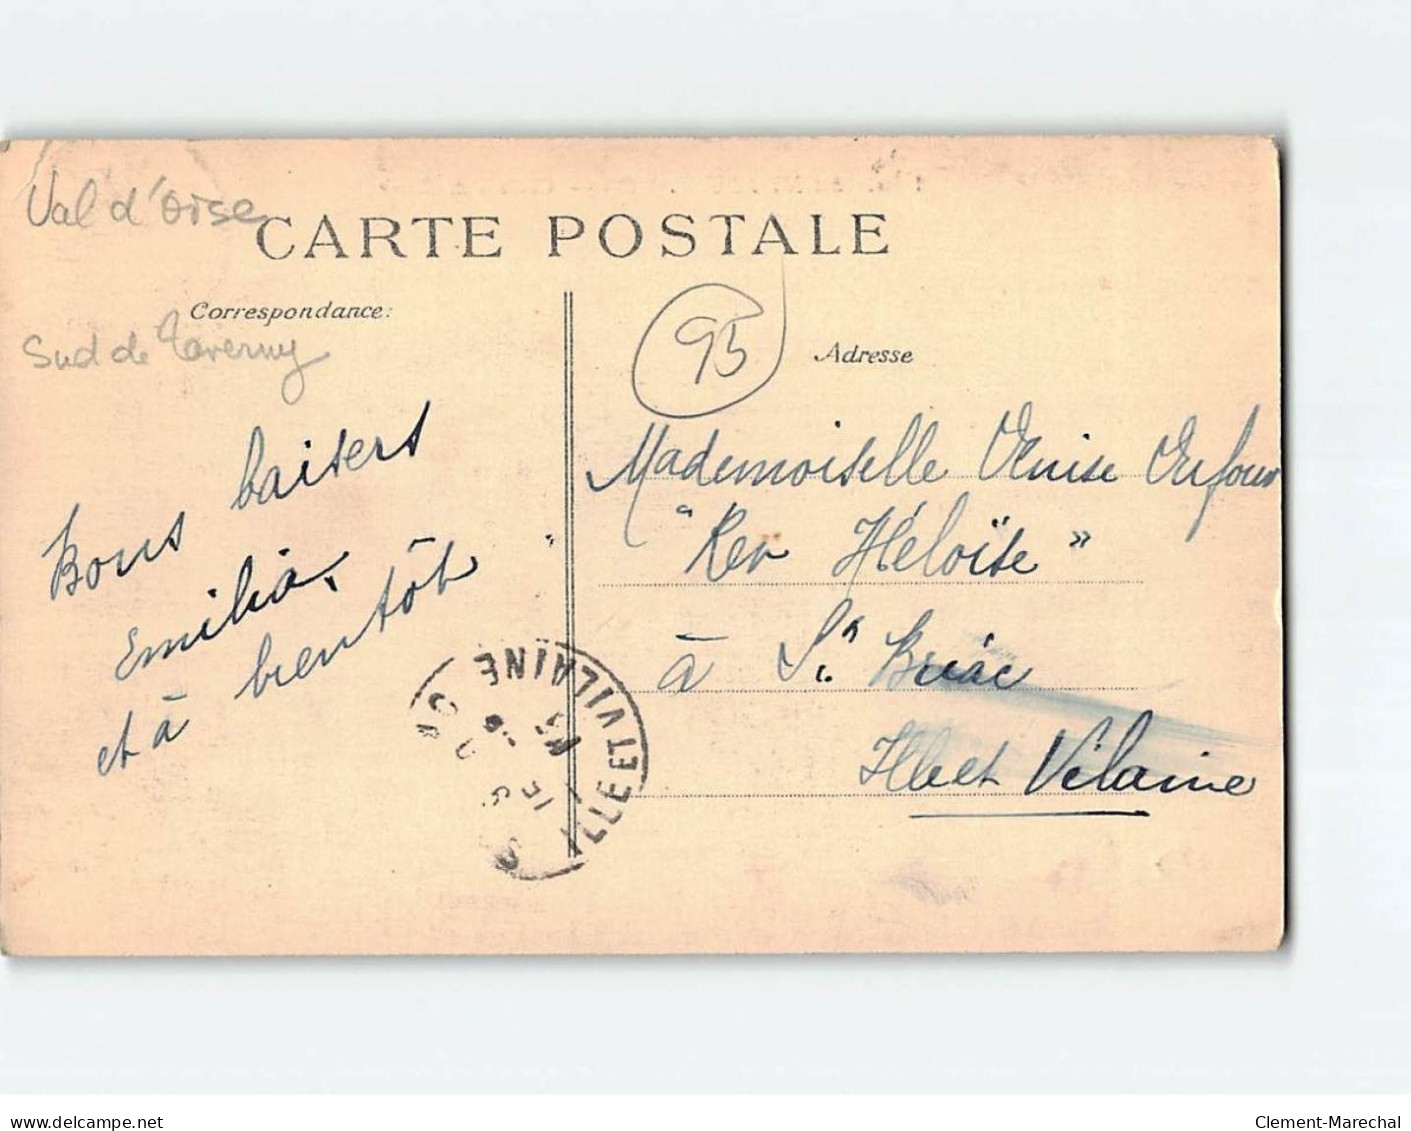 Val d'Oise
CARTE POSTALE
Correspondance:
Sud de Taverny
95
Adresse
Bons baisers
Emilia.
et à bientôt
Mademoiselle Denise
" Ker Héloïse "
à St Briac
Ille et Vilaine
ILLE ET VILAINE
www.delcampe.net
Clement-Marechal